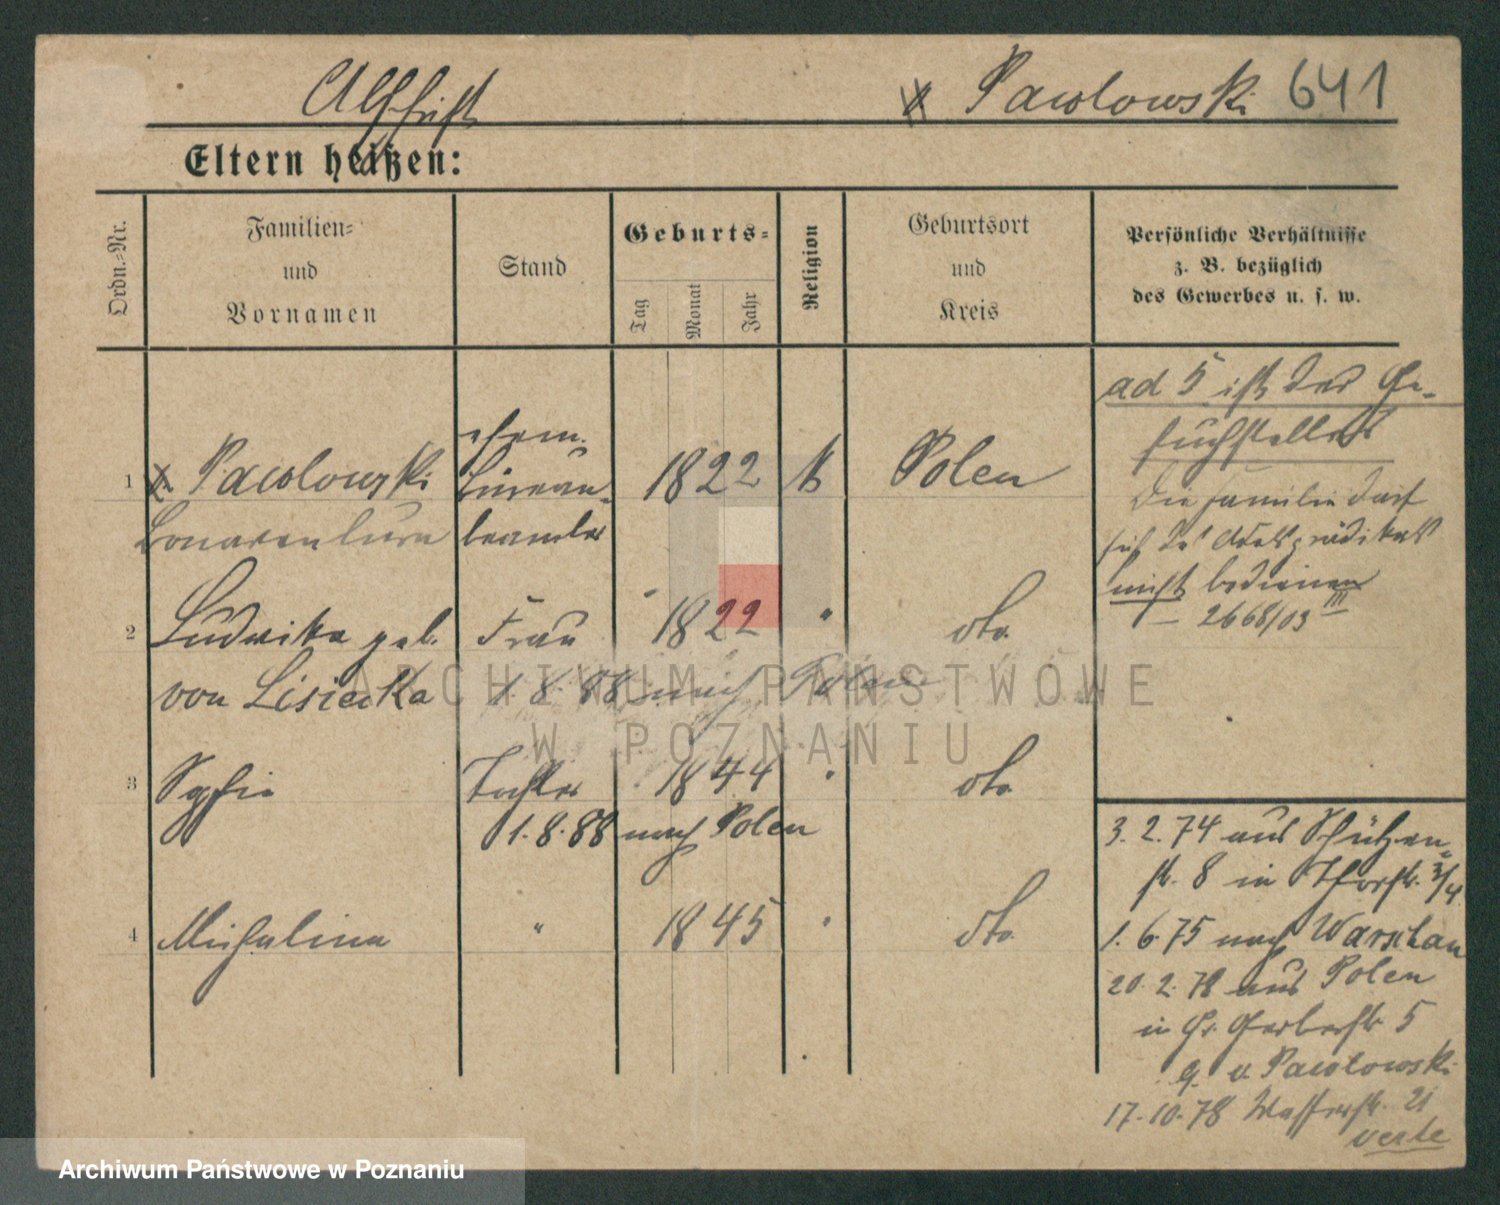 Abschrift
v. Pawlowski 641
Eltern heißen:
Ordn.-Nr.
Familien-
und
Vornamen
Stand
Geburts-
Tag
Monat
Jahr
Religion
Geburtsort
und
Kreis
Persönliche Verhältnisse
z. B. bezüglich
des Gewerbes u. s. w.
1 v. Pawlowski
Bonaventura
ehem.
Bureau-
beamter
1822 k Polen
2 Ludwika geb. Frau 1822 " dto.
von Lisiecka 1.8.88 nach Polen
3 Sophie Tochter 1844 " dto.
1.8.88 nach Polen
4 Michalina " 1845 " dto.
ad 5 ist der Ge-
suchsteller
Die Familie darf
sich des Adelsprädikats
nicht bedienen
2668/03 III
3.2.74 aus Schützen-
str. 8 in Thorstr. 3/4
1.6.75 nach Warschau
20.2.78 aus Polen
in Gr. Gerberstr 5
v. Pawlowski
17.10.78 Wasserstr. 21
verte
ARCHIWUM PAŃSTWOWE
W POZNANIU
Archiwum Państwowe w Poznaniu